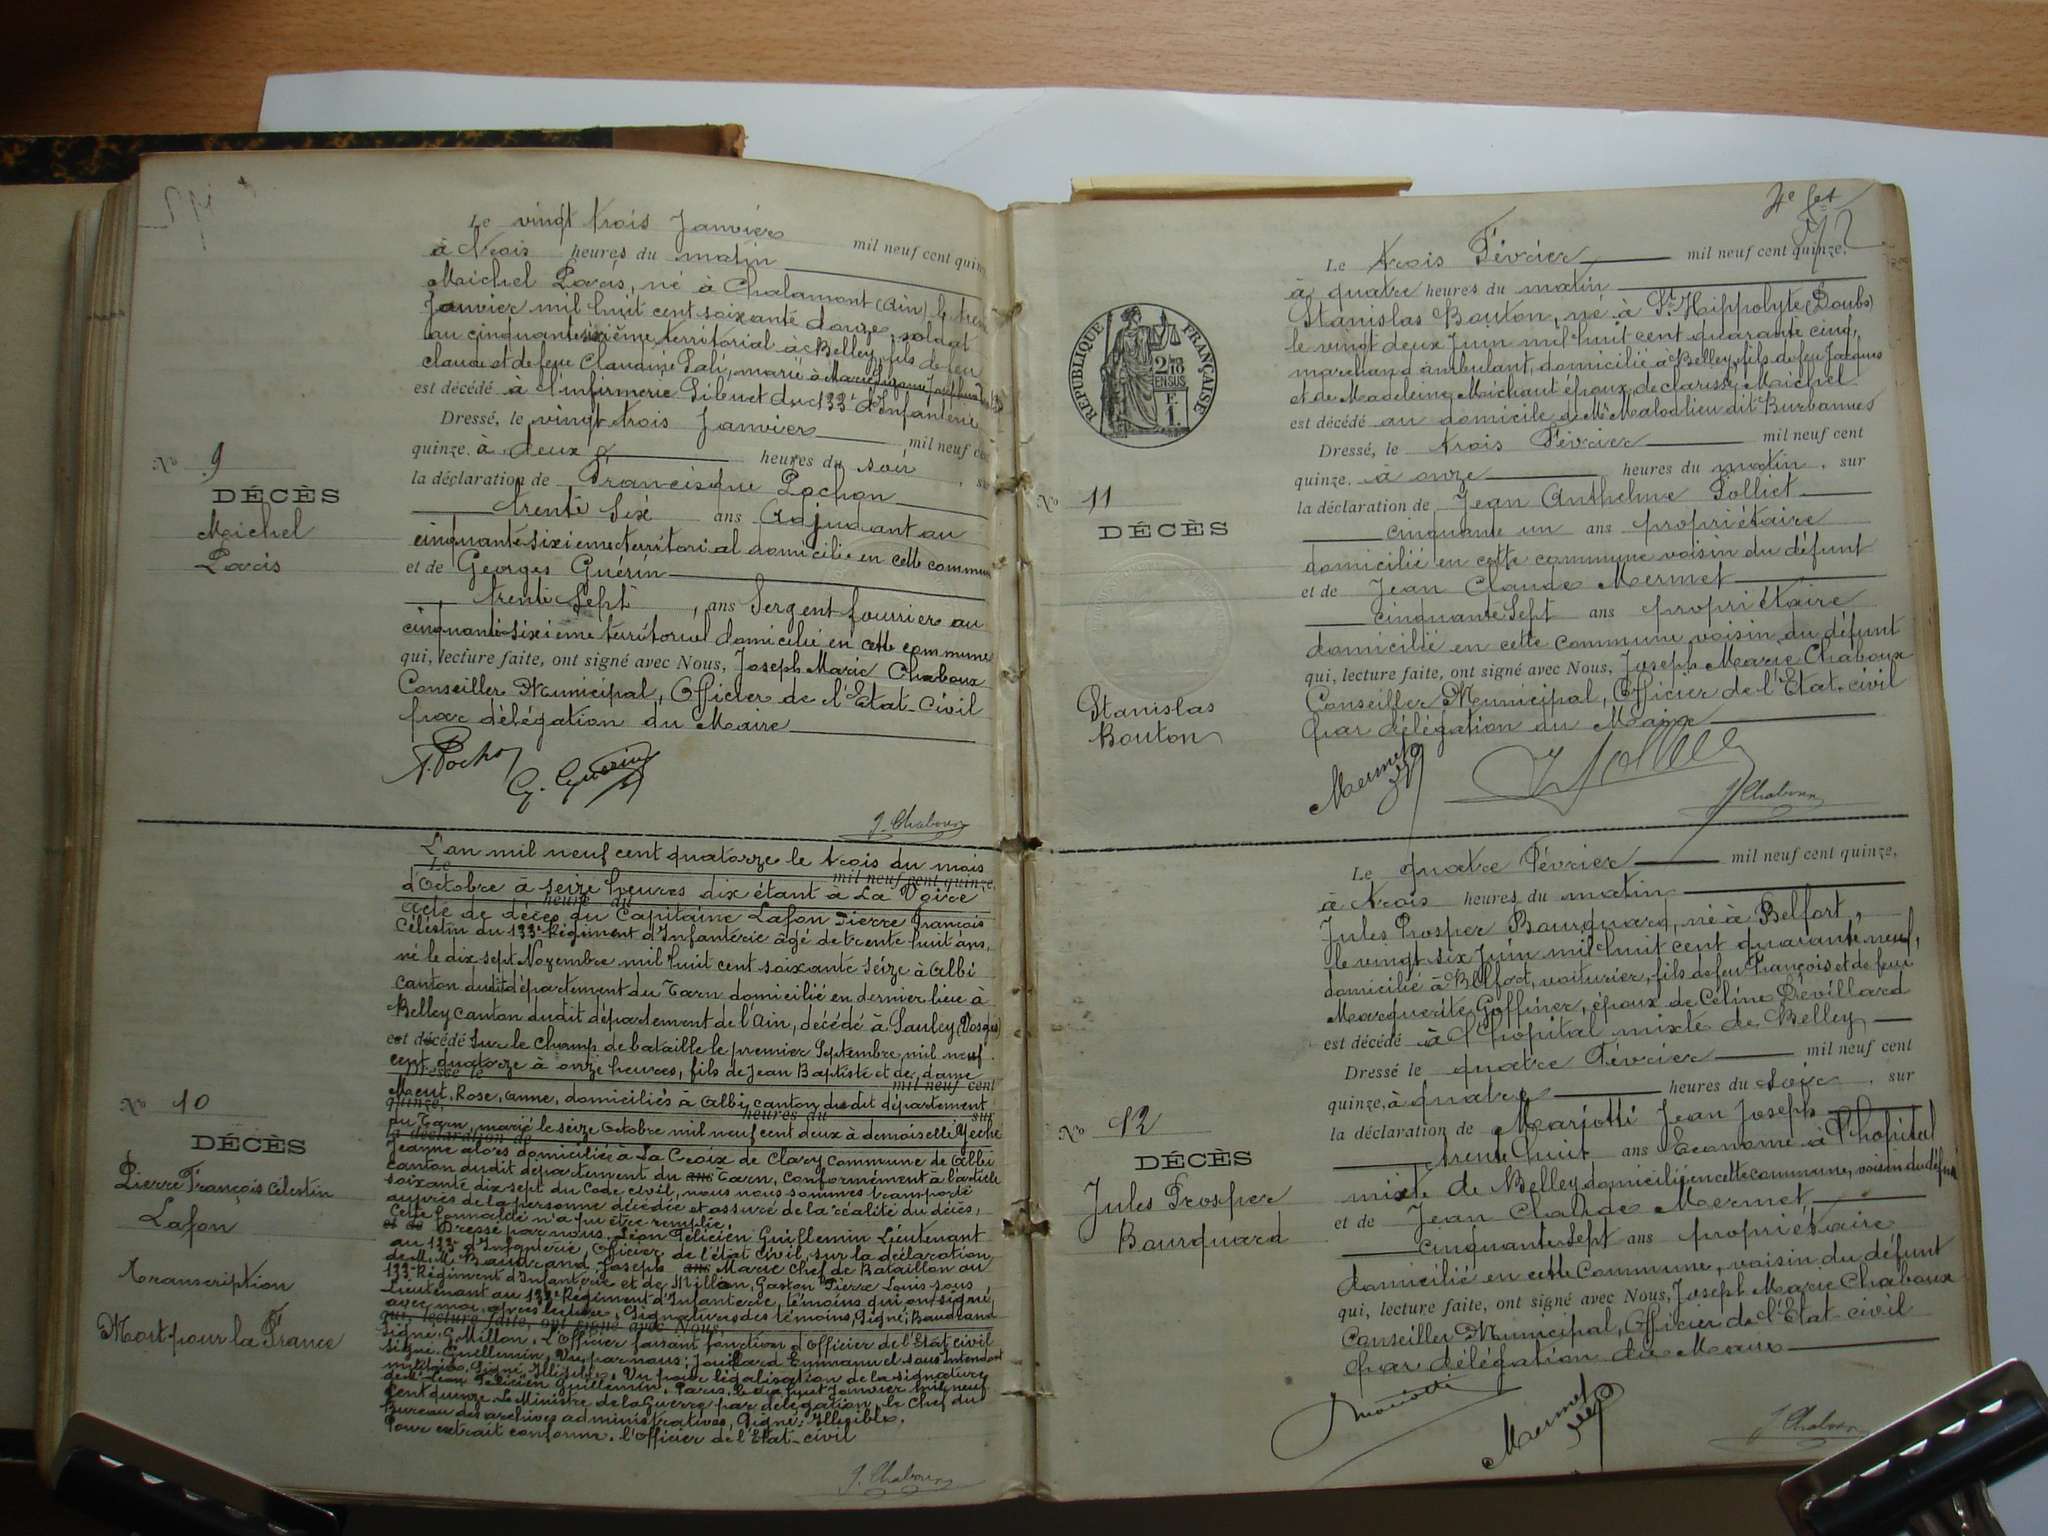 Le vingt trois Janvier mil neuf cent quin
à trois heures du matin
Michel Pavis, né à Chalamont (Ain) le
Janvier mil huit cent soixante douze, soldat
au cinquante sixième territorial à Belley, fils de feu
Claude et de feue Claudine Pali, marié à Marie
est décédé à l'infirmerie Sibuet du 133e d'Infanterie
Dressé, le vingt trois Janvier mil neuf ce
quinze. à deux heures du soir, su
la déclaration de Francisque Pochon
trente six ans Adjudant au
cinquante-sixième territorial domicilié en cette commune
et de Georges Guérin
trente sept, ans Sergent fourrier au
cinquante-sixième territorial domicilié en cette commune
qui, lecture faite, ont signé avec Nous, Joseph Marie Chaboux
Conseiller Municipal, Officier de l'Etat-Civil
par délégation du Maire
No 9
DÉCÈS
Michel
Pavis
F. Pochon
G. Guérin
J. Chaboux
L'an mil neuf cent quatorze le trois du mois
Le mil neuf cent quinze,
d'Octobre à seize heures dix étant à La Voivre
heures du
acte de décès du Capitaine Lafon Pierre François
Célestin du 133e Régiment d'Infanterie âgé de trente huit ans,
né le dix sept Novembre mil huit cent soixante seize à Albi
canton dudit département du Tarn domicilié en dernier lieu à
Belley canton dudit département de l'Ain, décédé à Saulcy (Vosges)
est décédé sur le champ de bataille le premier Septembre mil neuf
cent quatorze à onze heures, fils de Jean Baptiste et de dame
Dressé le mil neuf cent
Maeut, Rose, Anne, domiciliés à Albi canton du dit département
quinze, heures du sur
du Tarn, marié le seize Octobre mil neuf cent deux à demoiselle
la déclaration de
Jeanne alors domiciliée à La Croix de Clary commune de Albi
canton dudit département du ans Tarn. Conformément à l'article
soixante dix sept du Code civil, nous nous sommes transporté
auprès de la personne décédée et assuré de la réalité du décès,
Cette formalité n'a pu être remplie.
et de Dressé par nous. Léon Félicien Guillemin Lieutenant
au 133e d'Infanterie, Officier de l'état civil, sur la déclaration
de M.M. Baudrand Joseph ans Marie Chef de Bataillon au
133e Régiment d'Infanterie et de Millon, Gaston Pierre Louis sous
Lieutenant au 133e Régiment d'Infanterie, témoins qui ont signé
avec moi après lecture. Signatures des témoins, Signé, Baudrand
qui, lecture faite, ont signé avec Nous,
Signé: G. Millon. L'Officier faisant fonction d'Officier de l'Etat civil
signé: Guillemin. Vu par nous: Jouffard Emmanuel sous Intendant
militaire, Signé Illisible. Vu pour légalisation de la signature
de M. Léon Félicien Guillemin, Paris, le dix huit Janvier mil neuf
cent quinze. Le Ministre de la Guerre par délégation, le Chef du
Bureau des archives administratives, Signé: Illisible.
Pour extrait conforme, l'Officier de l'Etat-civil
No 10
DÉCÈS
Pierre François Célestin
Lafon
Transcription
Mort pour la France
J. Chaboux
4e fet
Le trois Février mil neuf cent quinze.
à quatre heures du matin
Stanislas Bouton, né à St Hippolyte (Doubs)
le vingt deux Juin mil huit cent quarante cinq,
marchand ambulant, domicilié à Belley, fils de feu Jacques
et de Madeleine Michaut époux de Clarisse Michel
est décédé au domicile de Mr Malodlieu dit Burbannes
Dressé, le trois Février mil neuf cent
quinze. à onze heures du matin, sur
la déclaration de Jean Anthelme Polliet
cinquante un ans propriétaire
domicilié en cette commune voisin du défunt
et de Jean Claude Mermet
cinquante sept ans propriétaire
domicilié en cette commune voisin du défunt
qui, lecture faite, ont signé avec Nous, Joseph Marie Chaboux
Conseiller Municipal, Officier de l'Etat-civil
par délégation du Maire
REPUBLIQUE FRANÇAISE
2/10 EN SUS
F. 1
No 11
DÉCÈS
Stanislas
Bouton
Mermet
J Chaboux
Le quatre Février mil neuf cent quinze,
à trois heures du matin
Jules Prosper Bourquard, né à Belfort,
le vingt six Juin mil huit cent quarante neuf,
domicilié à Belfort, voiturier, fils de feu François et de feue
Marguerite Goffiner, époux de Céline Dévillard
est décédé à l'hôpital mixte de Belley
Dressé le quatre Février mil neuf cent
quinze, à quatre heures du soir, sur
la déclaration de Mariotti Jean Joseph
trente huit ans Econome à l'hôpital
mixte de Belley domicilié en cette commune, voisin du défunt
et de Jean Claude Mermet,
cinquante sept ans propriétaire
domicilié en cette Commune, voisin du défunt
qui, lecture faite, ont signé avec Nous, Joseph Marie Chaboux
Conseiller Municipal, Officier de l'Etat-civil
par délégation du Maire
No 12
DÉCÈS
Jules Prosper
Bourquard
Mariotti
Mermet
J. Chaboux